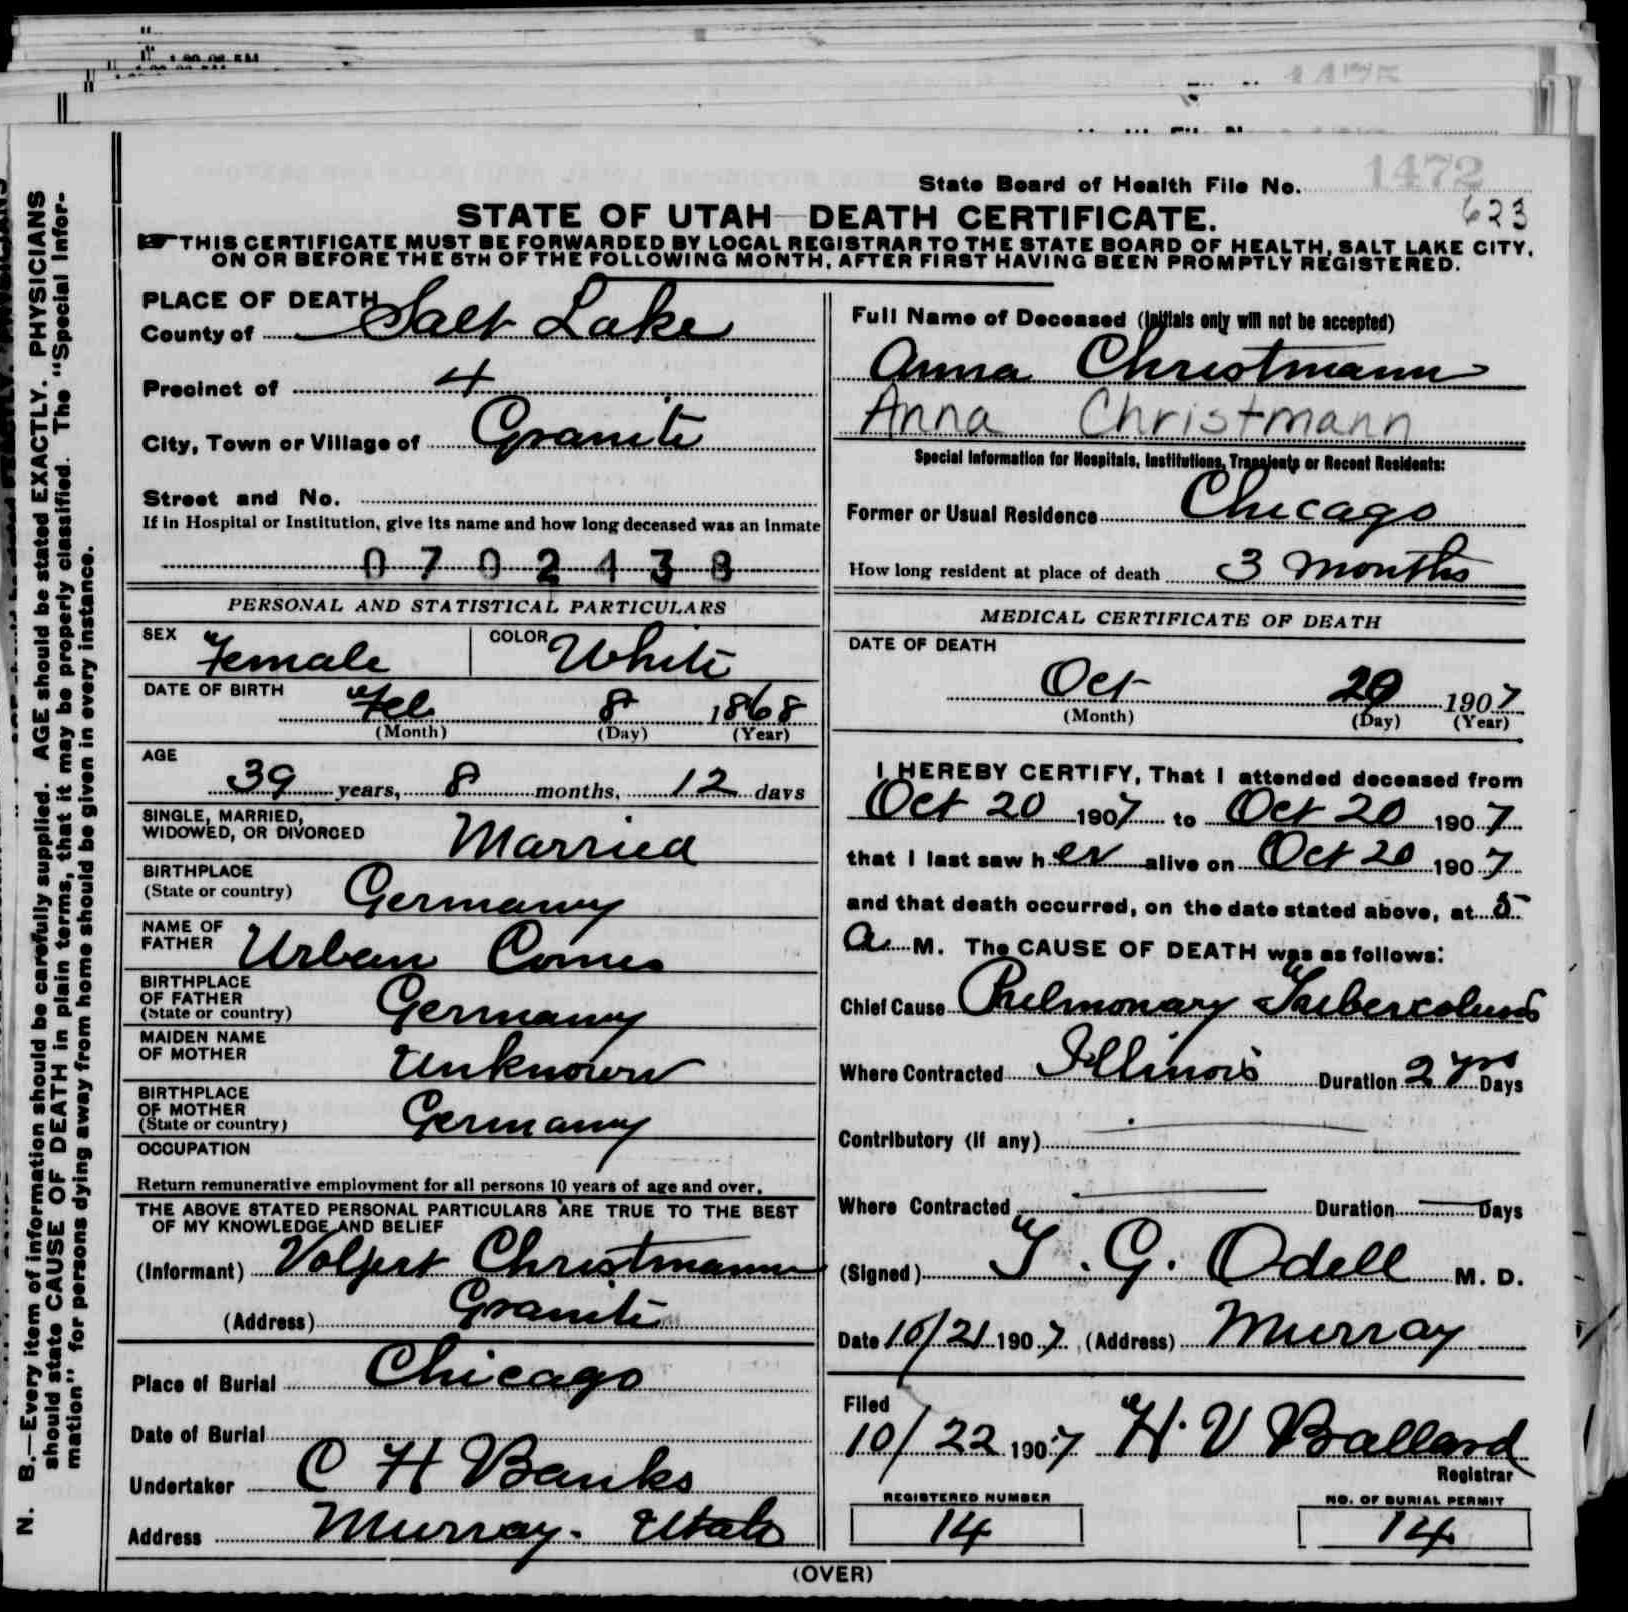 1472
State Board of Health File No.
623
STATE OF UTAH DEATH CERTIFICATE.
THIS CERTIFICATE MUST BE FORWARDED BY LOCAL REGISTRAR TO THE STATE BOARD OF HEALTH, SALT LAKE CITY,
ON OR BEFORE THE 5TH OF THE FOLLOWING MONTH, AFTER FIRST HAVING BEEN PROMPTLY REGISTERED.
N. B.—Every item of information should be carefully supplied. AGE should be stated EXACTLY. PHYSICIANS
should state CAUSE OF DEATH in plain terms, that it may be properly classified. The "Special Infor-
mation" for persons dying away from home should be given in every instance.
PLACE OF DEATH
County of Salt Lake
Precinct of 4
City, Town or Village of Granite
Street and No.
If in Hospital or Institution, give its name and how long deceased was an Inmate
0 7 0 2 4 3 8
PERSONAL AND STATISTICAL PARTICULARS
SEX Female COLOR White
DATE OF BIRTH Feb 8 1868
(Month) (Day) (Year)
AGE
39 years, 8 months, 12 days
SINGLE, MARRIED,
WIDOWED, OR DIVORCED Married
BIRTHPLACE
(State or country) Germany
NAME OF
FATHER Urban Comes
BIRTHPLACE
OF FATHER
(State or country) Germany
MAIDEN NAME
OF MOTHER Unknown
BIRTHPLACE
OF MOTHER
(State or country) Germany
OCCUPATION
Return remunerative employment for all persons 10 years of age and over.
THE ABOVE STATED PERSONAL PARTICULARS ARE TRUE TO THE BEST
OF MY KNOWLEDGE AND BELIEF
(Informant) Volpert Christmann
(Address) Granite
Place of Burial Chicago
Date of Burial
Undertaker C H Banks
Address Murray - Utah
Full Name of Deceased (Initials only will not be accepted)
Anna Christmann
Anna Christmann
Special Information for Hospitals, Institutions, Transients or Recent Residents:
Former or Usual Residence Chicago
How long resident at place of death 3 months
MEDICAL CERTIFICATE OF DEATH
DATE OF DEATH
Oct 20 1907
(Month) (Day) (Year)
I HEREBY CERTIFY, That I attended deceased from
Oct 20 1907 to Oct 20 1907
that I last saw h er alive on Oct 20 1907
and that death occurred, on the date stated above, at 5
a M. The CAUSE OF DEATH was as follows:
Chief Cause Pulmonary Tuberculosis
Where Contracted Illinois Duration 2 yrs Days
Contributory (if any)
Where Contracted Duration Days
(Signed) T. G. Odell M. D.
Date 10/21 1907 (Address) Murray
Filed
10/22 1907 H. V Ballard
Registrar
REGISTERED NUMBER NO. OF BURIAL PERMIT
14 14
(OVER)